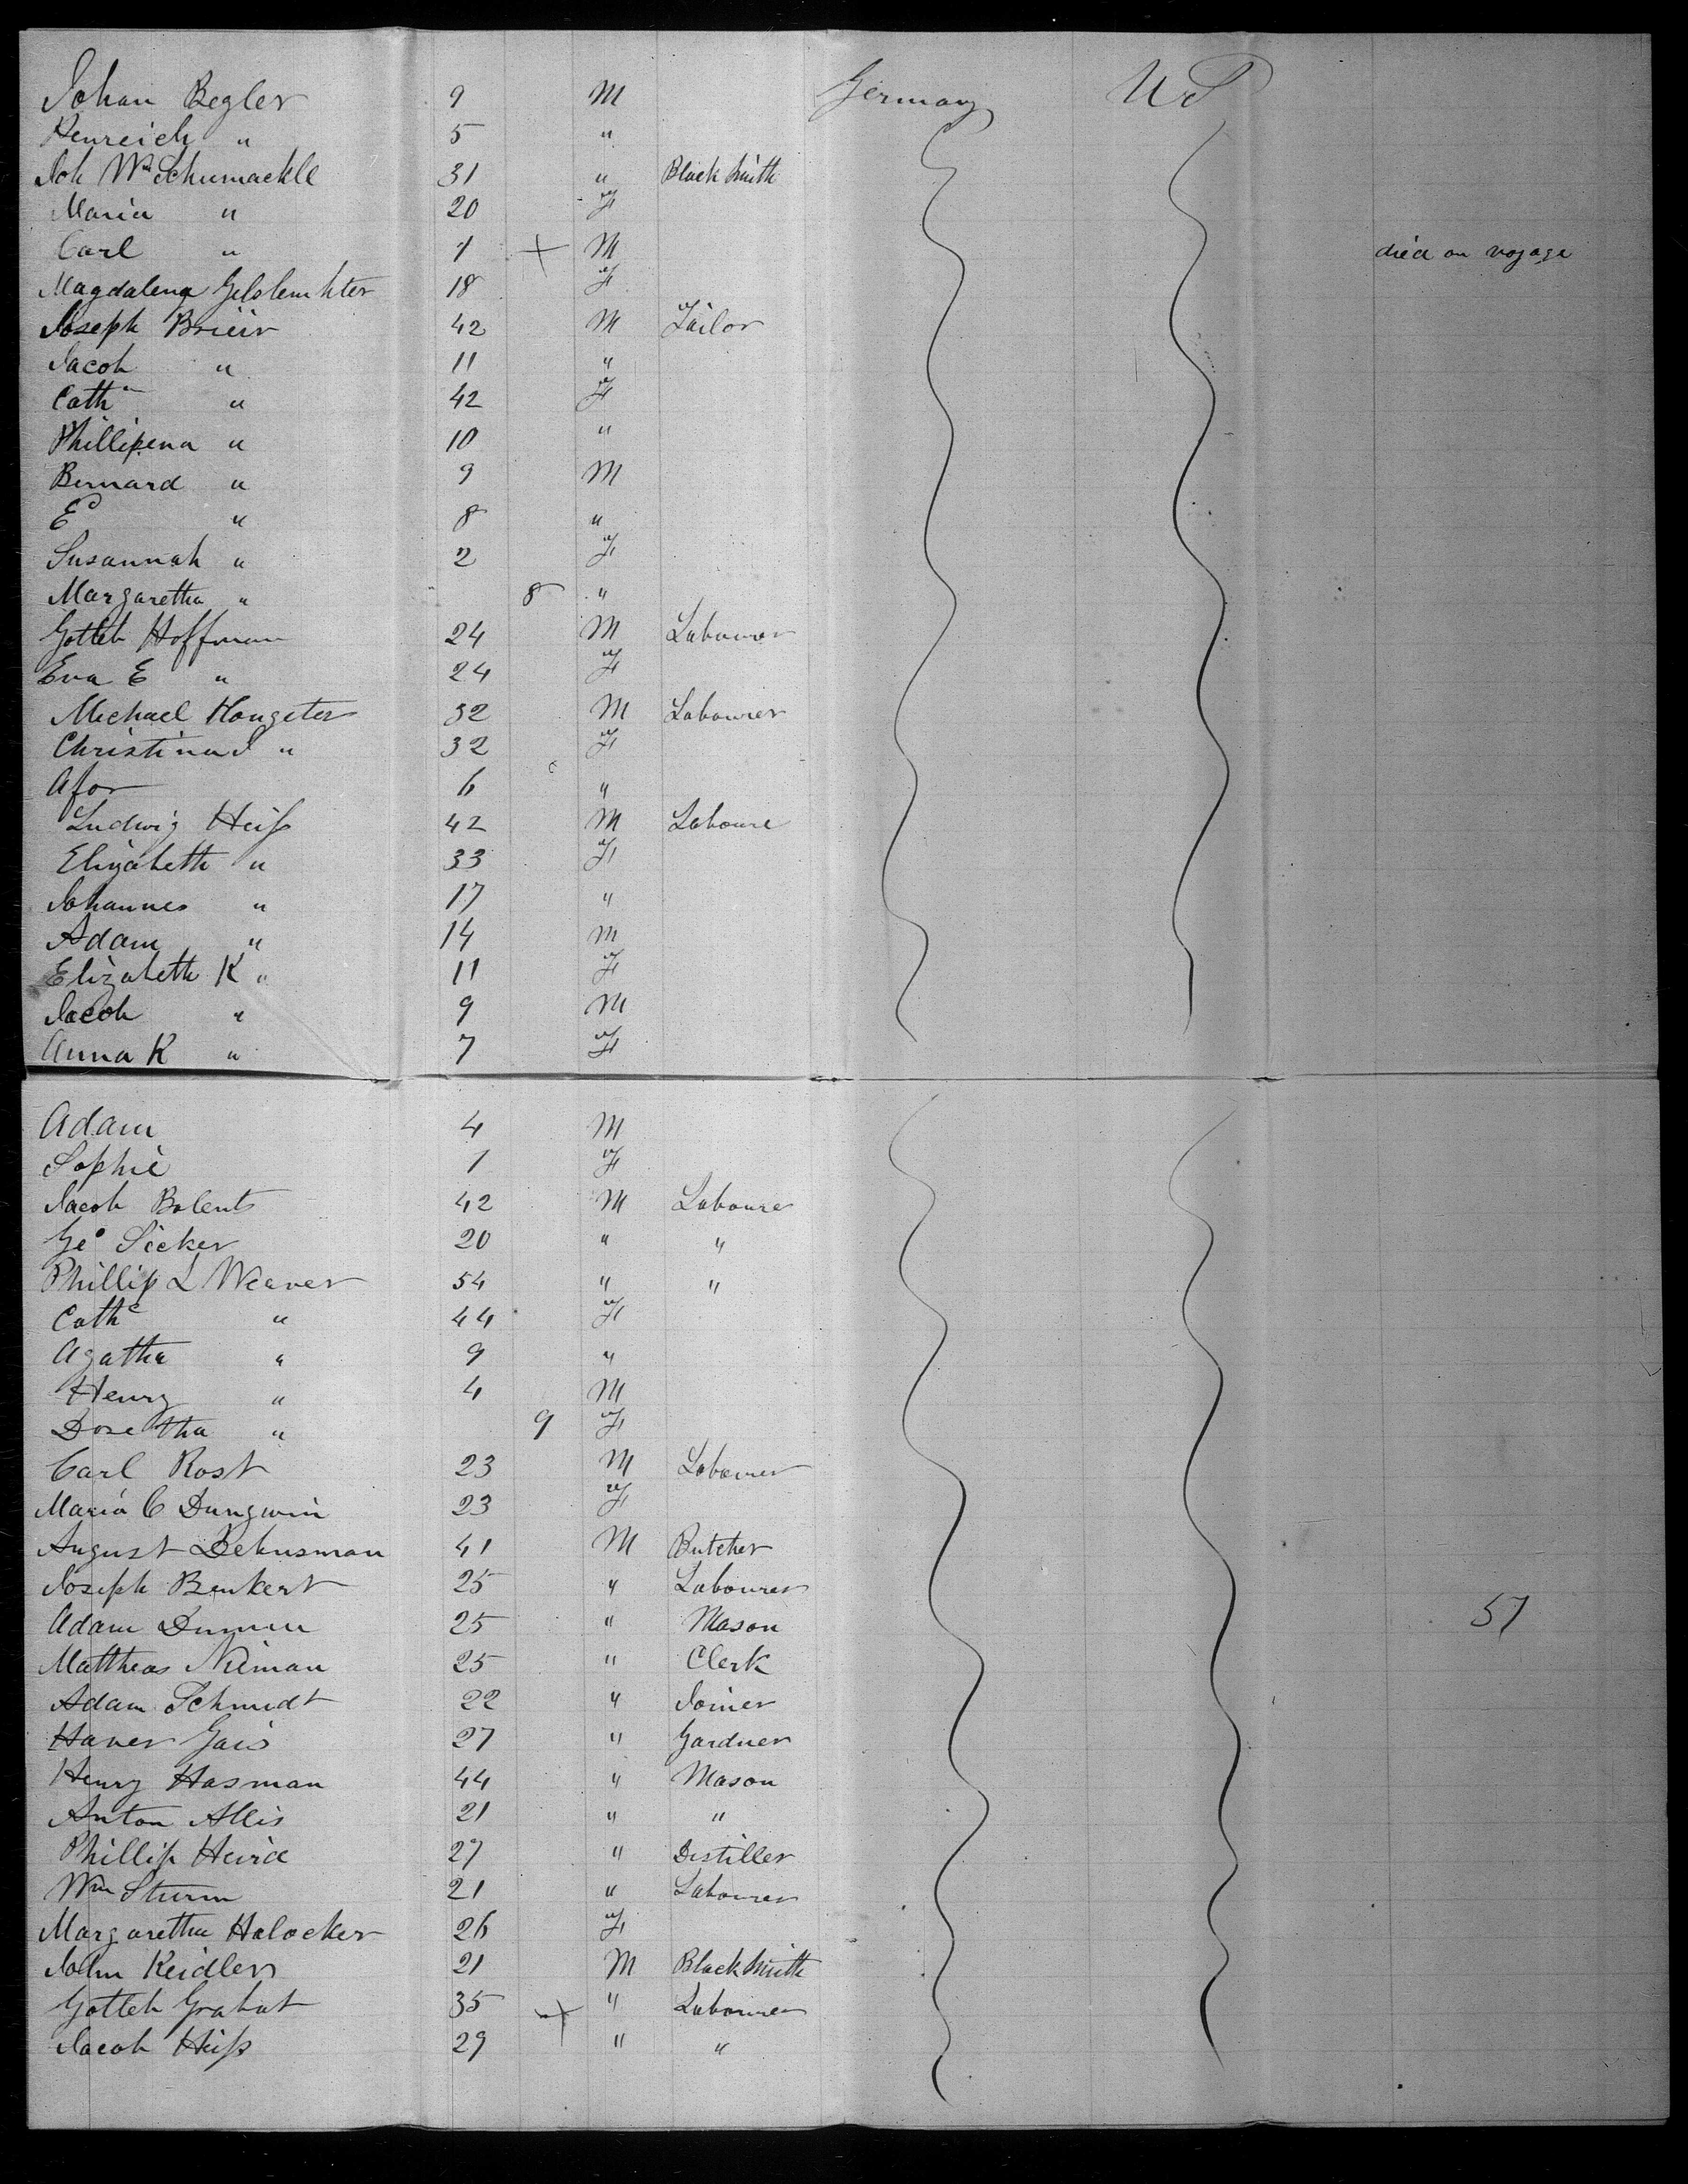 Johan Begler 9 M Germany US
Henreich " 5 "
Joh Wm Schumackle 31 " Blacksmith
Maria " 20 F
Carl " 1 + M died on voyage
Magdalena 18 F
Joseph Brieir 42 M Tailor
Jacob " 11 "
Cath " 42 F
Phillipena " 10 "
Bernard " 9 M
Ed " 8 "
Susannah " 2 F
Margaretha " 8 "
Gotleb Hoffman 24 M Labourer
Eva E " 24 F
Michael Hongeter 32 M Labourer
Christina " 32 F
Afor 6 "
Ludwig Heiß 42 M Laboure
Elizabeth " 33 F
Johannes " 17 "
Adam " 14 M
Elizabeth K " 11 F
Jacob " 9 M
Anna K " 7 F
Adam 4 M
Sophie 1 F
Jacob Bolents 42 M Laboure
Geo Sicker 20 " "
Phillip L Weaver 54 " "
Cathe " 44 F
Agatha " 9 "
Henry " 4 M
Doretha " 9 F
Carl Rost 23 M Labourer
Maria C Dungwin 23 F
August Dekusman 41 M Butcher
Joseph Benkert 25 " Labourer
Adam 25 " Mason 51
Mattheas Niman 25 " Clerk
Adam Schmidt 22 " Joiner
Haver Gais 27 " Gardner
Henry Hasman 44 " Mason
Anton Allis 21 " "
Phillip Heird 27 " Distiller
Wm Sturm 21 " Labourer
Margaretha Halocker 26 F
John Keidler 21 M Blacksmith
Gotleb Grabat 35 + " Labourer
Jacob Heiß 29 " "